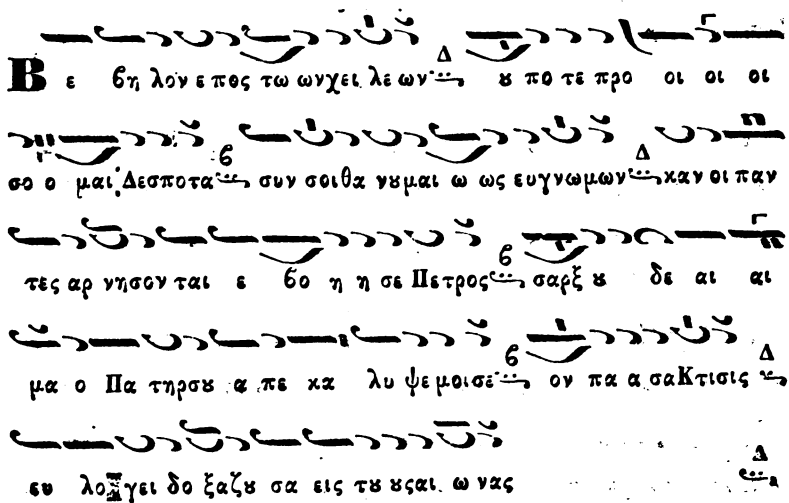 Β ε βη λον ε πος τω ων χει λε ων Δ ȣ πο τε προ οι οι οι
σο ο μαι Δεσποτα β συν σοι θα νȣμαι ω ως ευγνωμων Δ καν οι παν
τες αρ νησον ται ε βο η η σε Πετρος β σαρξ ȣ δε αι αι
μα ο Πα τηρ σȣ α πε κα λυ ψε μοι σε β ον πα α σα Κτισις Δ
ευ λο γει δο ξαζȣ σα εις τȣ ȣς αι ω νας Δ